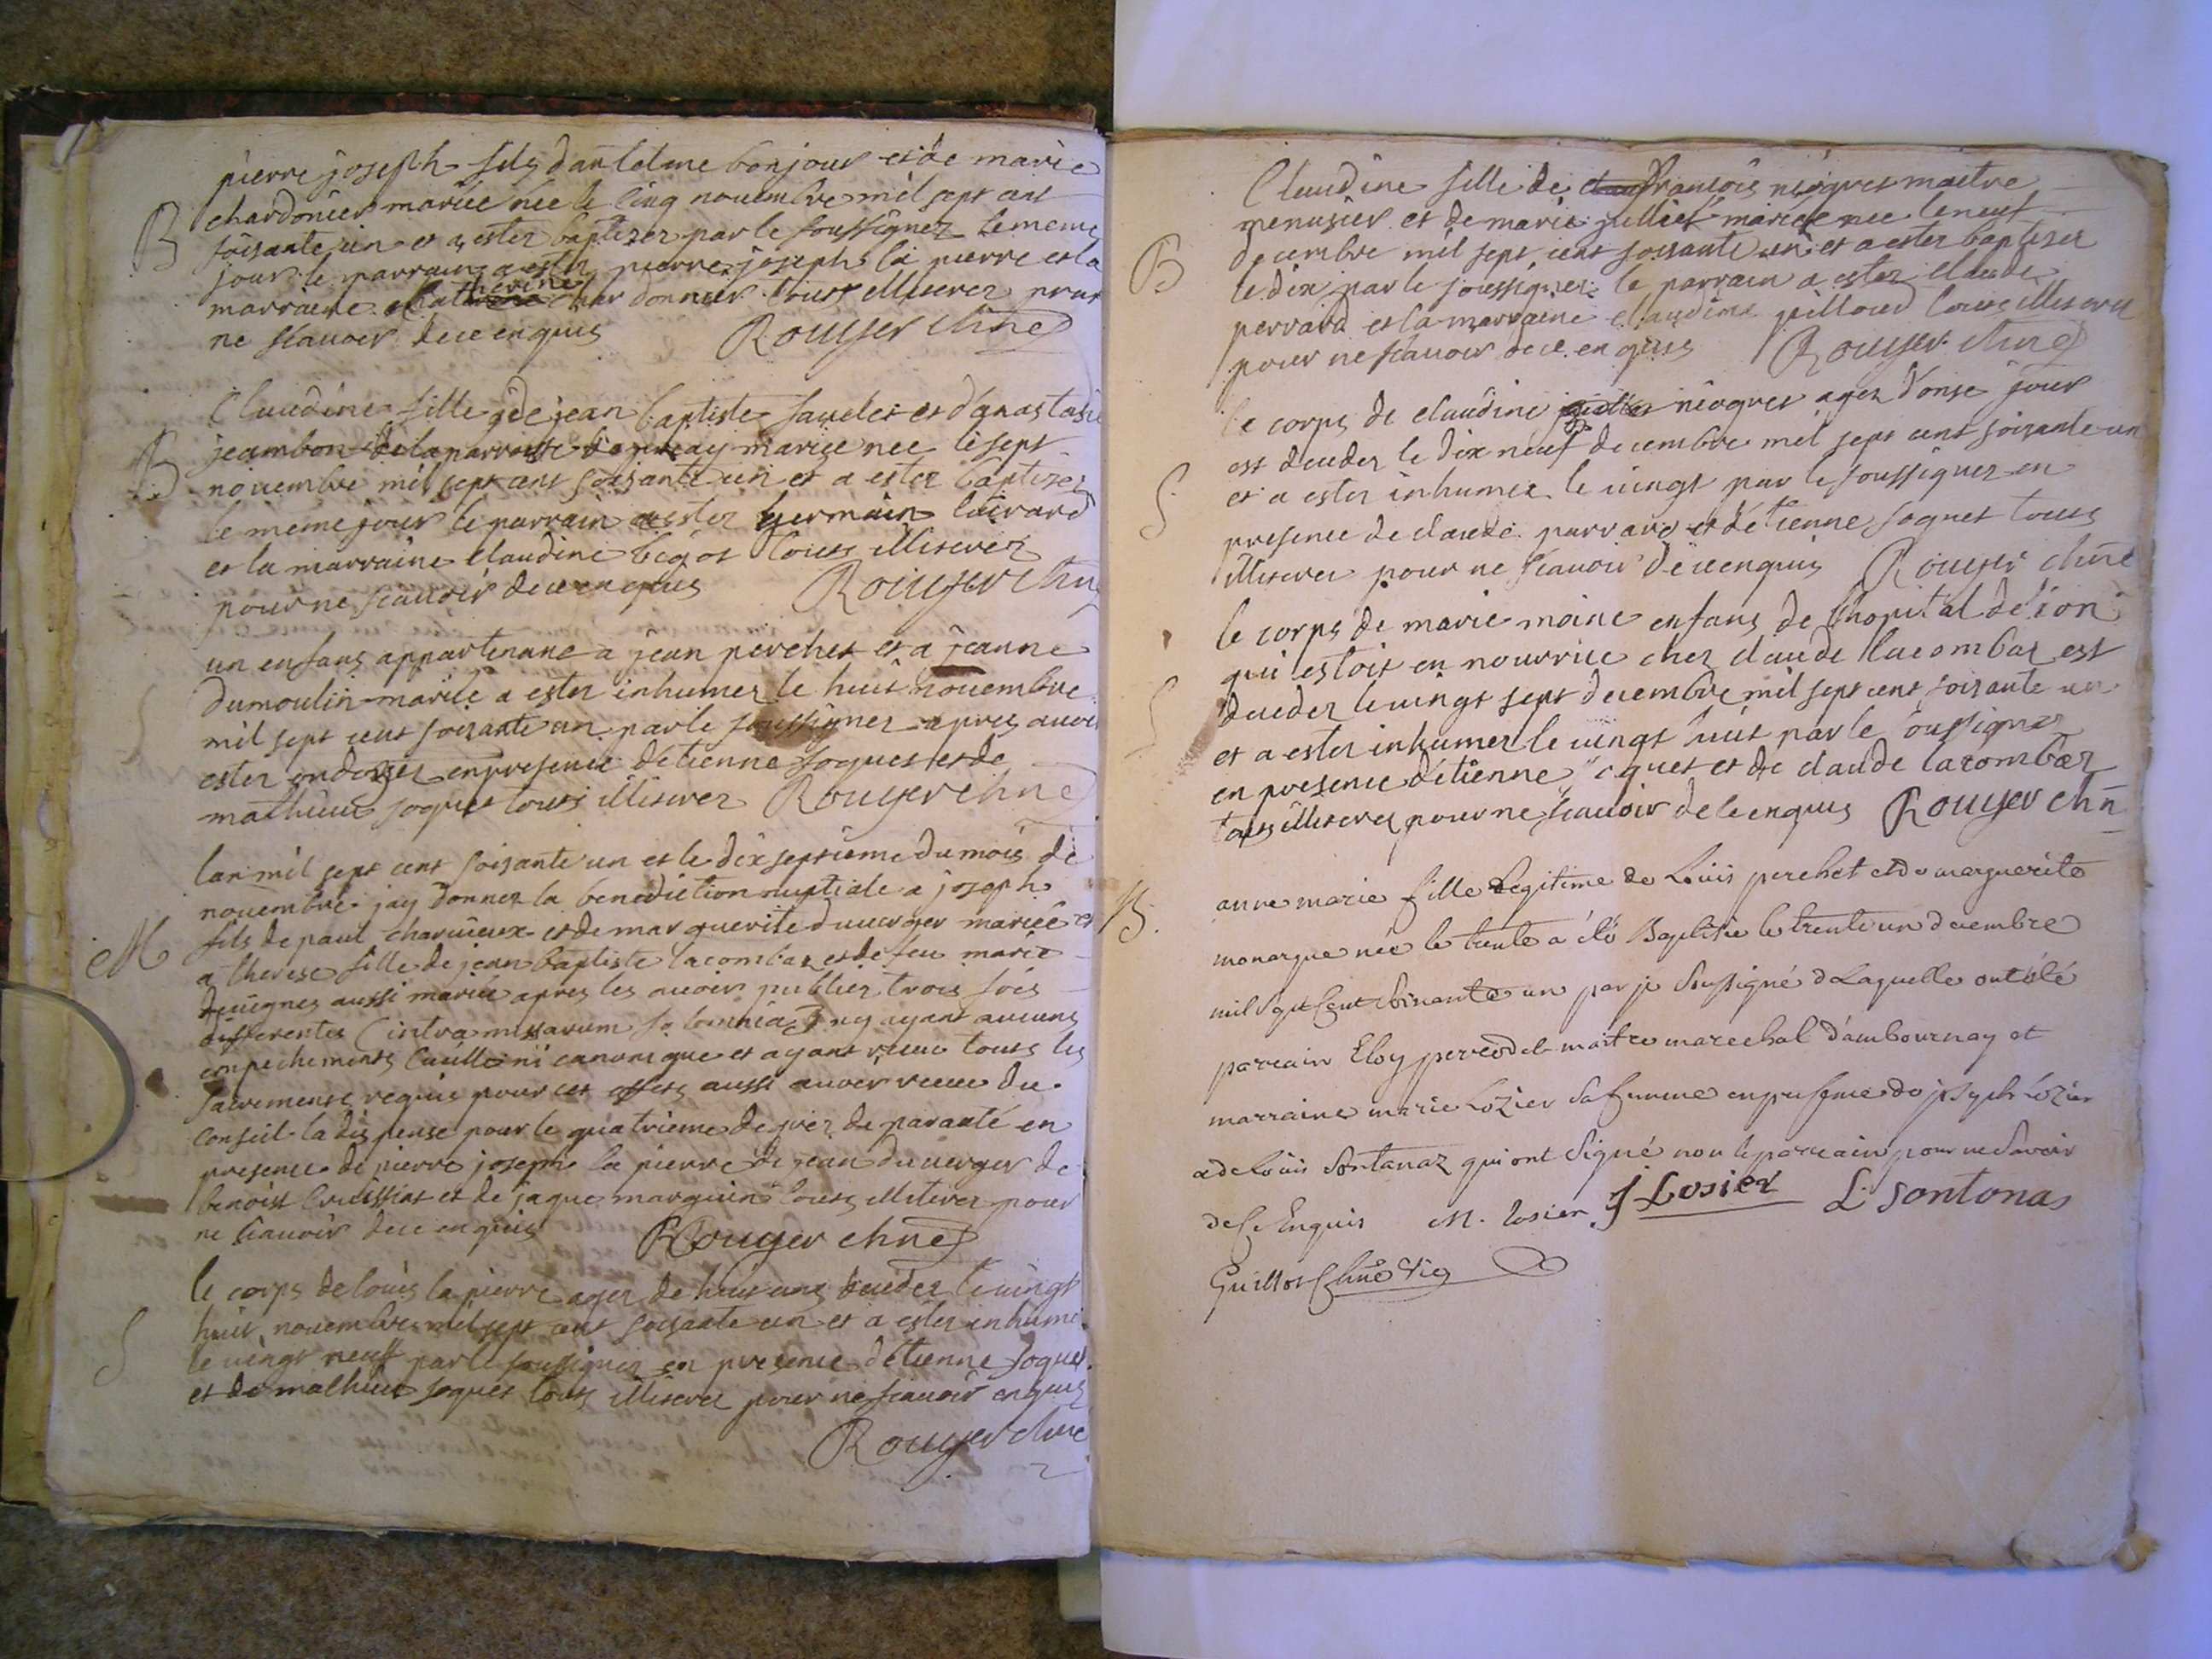 pierre joseph fils danteleme bonjour et de marie
B chardonier mariée née le cinq novembre mil sept cent
soisante un et a ester baptizer par le soussignez le meme
jour le parrain a ester pierre joseph la pierre et la
marraine Catherine chardonnier touts illiterez pour
ne scavoir de ce enquis Rouyer chne
Claudine fille de jean baptiste et d'anastasie
B jeambon de la parroisse mariee nee le sept
novembre mil sept cent soisante un et a ester baptizer
le meme jour le parrain a ester germain
et la marraine claudine bigot touts illiterez
pour ne scavoir de ce enquis Rouyer chne
un enfans appartenant a jean perchet et a jeanne
S dumoulin mariée a ester inhumez le huit novembre
mil sept cent soisante un par le soussignez apres avoir
ester ondoyer en presence détienne soquet et de
mathieu soquet touts illiterez Rouyer chne
lan mil sept cent soisante un et le dix septieme du mois de
novembre jay donnez la benediction nuptiale a joseph
M fils de paul charvieux et de marguerite duverger mariée et
a therese fille de jean baptiste lacombaz et de feu marie
aussi mariée apres les avoir publiez trois fois
differentes (intra missarum solemnia) ny ayant aucuns
enpechements ni canonique et ayant receu touts les
sacrements requis pour cet effets aussi avoir receu du
conseil la dispense pour le quatrieme degrez de paranté en
presence de pierre joseph la pierre de jean duverger de
benoist et de jaque marguin touts illiterez pour
ne scavoir de ce enquis Rouyer chne
le corps de louis la pierre agez de huit ans deceder le vingt
S huit novembre mil sept cent soisante un et a ester inhumé
le vingt neuf par le soussignez en presence détienne soquet
et de mathieu soquet touts illiterez pour ne scavoir enquis
Rouyer chne
Claudine fille de françois niogret maitre
menusier et de marie mariée nee le neuf
B decembre mil sept cent soisante un et a ester baptiser
le dix par le soussignez le parrain a ester claude
perrard et la marraine claudine pilloud touts illiterez
pour ne scavoir de ce enquis Rouyer chne
le corps de claudine niogret agez d'onse jour
est deceder le dix neuf decembre mil sept cent soisante un
S et a ester inhumez le vingt par le soussignez en
presence de claude parrard et détienne soquet touts
illiterez pour ne scavoir de ce enquis Rouyer chne
le corps de marie moine enfans de lhopital de lion
qui estoit en nourrice chez claude lacombaz est
S deceder le vingt sept decembre mil sept cent soisante un
et a ester inhumer le vingt huit par le soussignez
en presence détienne soquet et de claude lacombaz
touts illiterez pour ne scavoir de ce enquis Rouyer chn
B. anne marie fille legitime de Louis perchet et de marguerite
monarque née le trente a été Baptisée le trente un decembre
mil sept cent soixante un par je soussigné de Laquelle ont été
parrain Eloy maitre marechal d'ambournay et
marraine marie Lozier sa femme en presence de joseph Lozier
et de Louis Sontanaz qui ont signé non le parrain pour ne savoir
de ce Enquis M. losier J Losier L Sontonas
Guillot Chne Vic